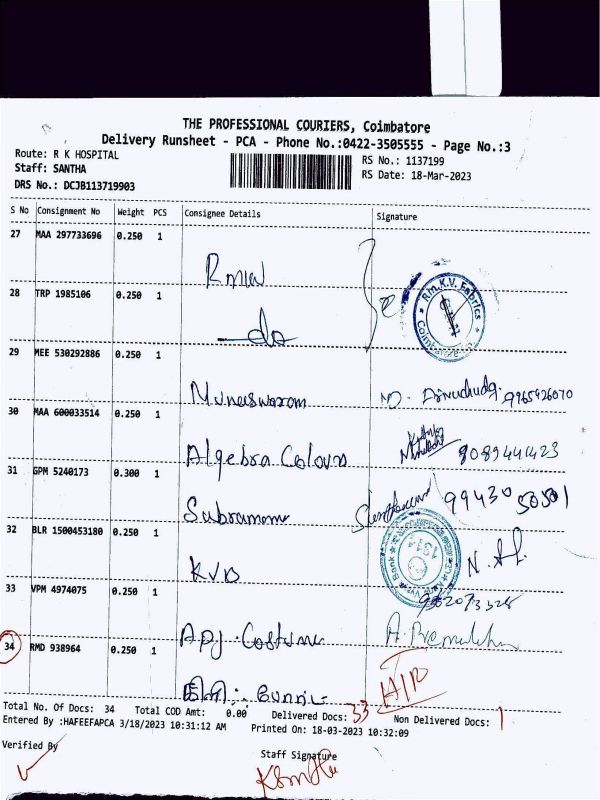 THE PROFESSIONAL COURIERS, Coimbatore
Delivery Runsheet - PCA - Phone No.:0422-3505555 - Page No.:3
Route: R K HOSPITAL
RS No.: 1137199
Staff: SANTHA
RS Date: 18-Mar-2023
DRS No.: DCJB113719903
S No Consignment No Weight PCS Consignee Details Signature
27 MAA 297733696 0.250 1
Rmkv
R.m.K.V. Fabrics
Coimbatore
28 TRP 1985106 0.250 1
do
29 MEE 530292886 0.250 1
Muneeswaram 9965926070
30 MAA 600033514 0.250 1
Algebra Colours 9089441423
31 GPM 5240173 0.300 1
Subramani 99430 50501
32 BLR 1500453180 0.250 1
KVB
Bank
33 VPM 4974075 0.250 1
Apj. Costume
34 RMD 938964 0.250 1
Total No. Of Docs: 34 Total COD Amt: 0.00 Delivered Docs: 33 Non Delivered Docs: 1
Entered By :HAFEEFAPCA 3/18/2023 10:31:12 AM Printed On: 18-03-2023 10:32:09
Verified By
Staff Signature